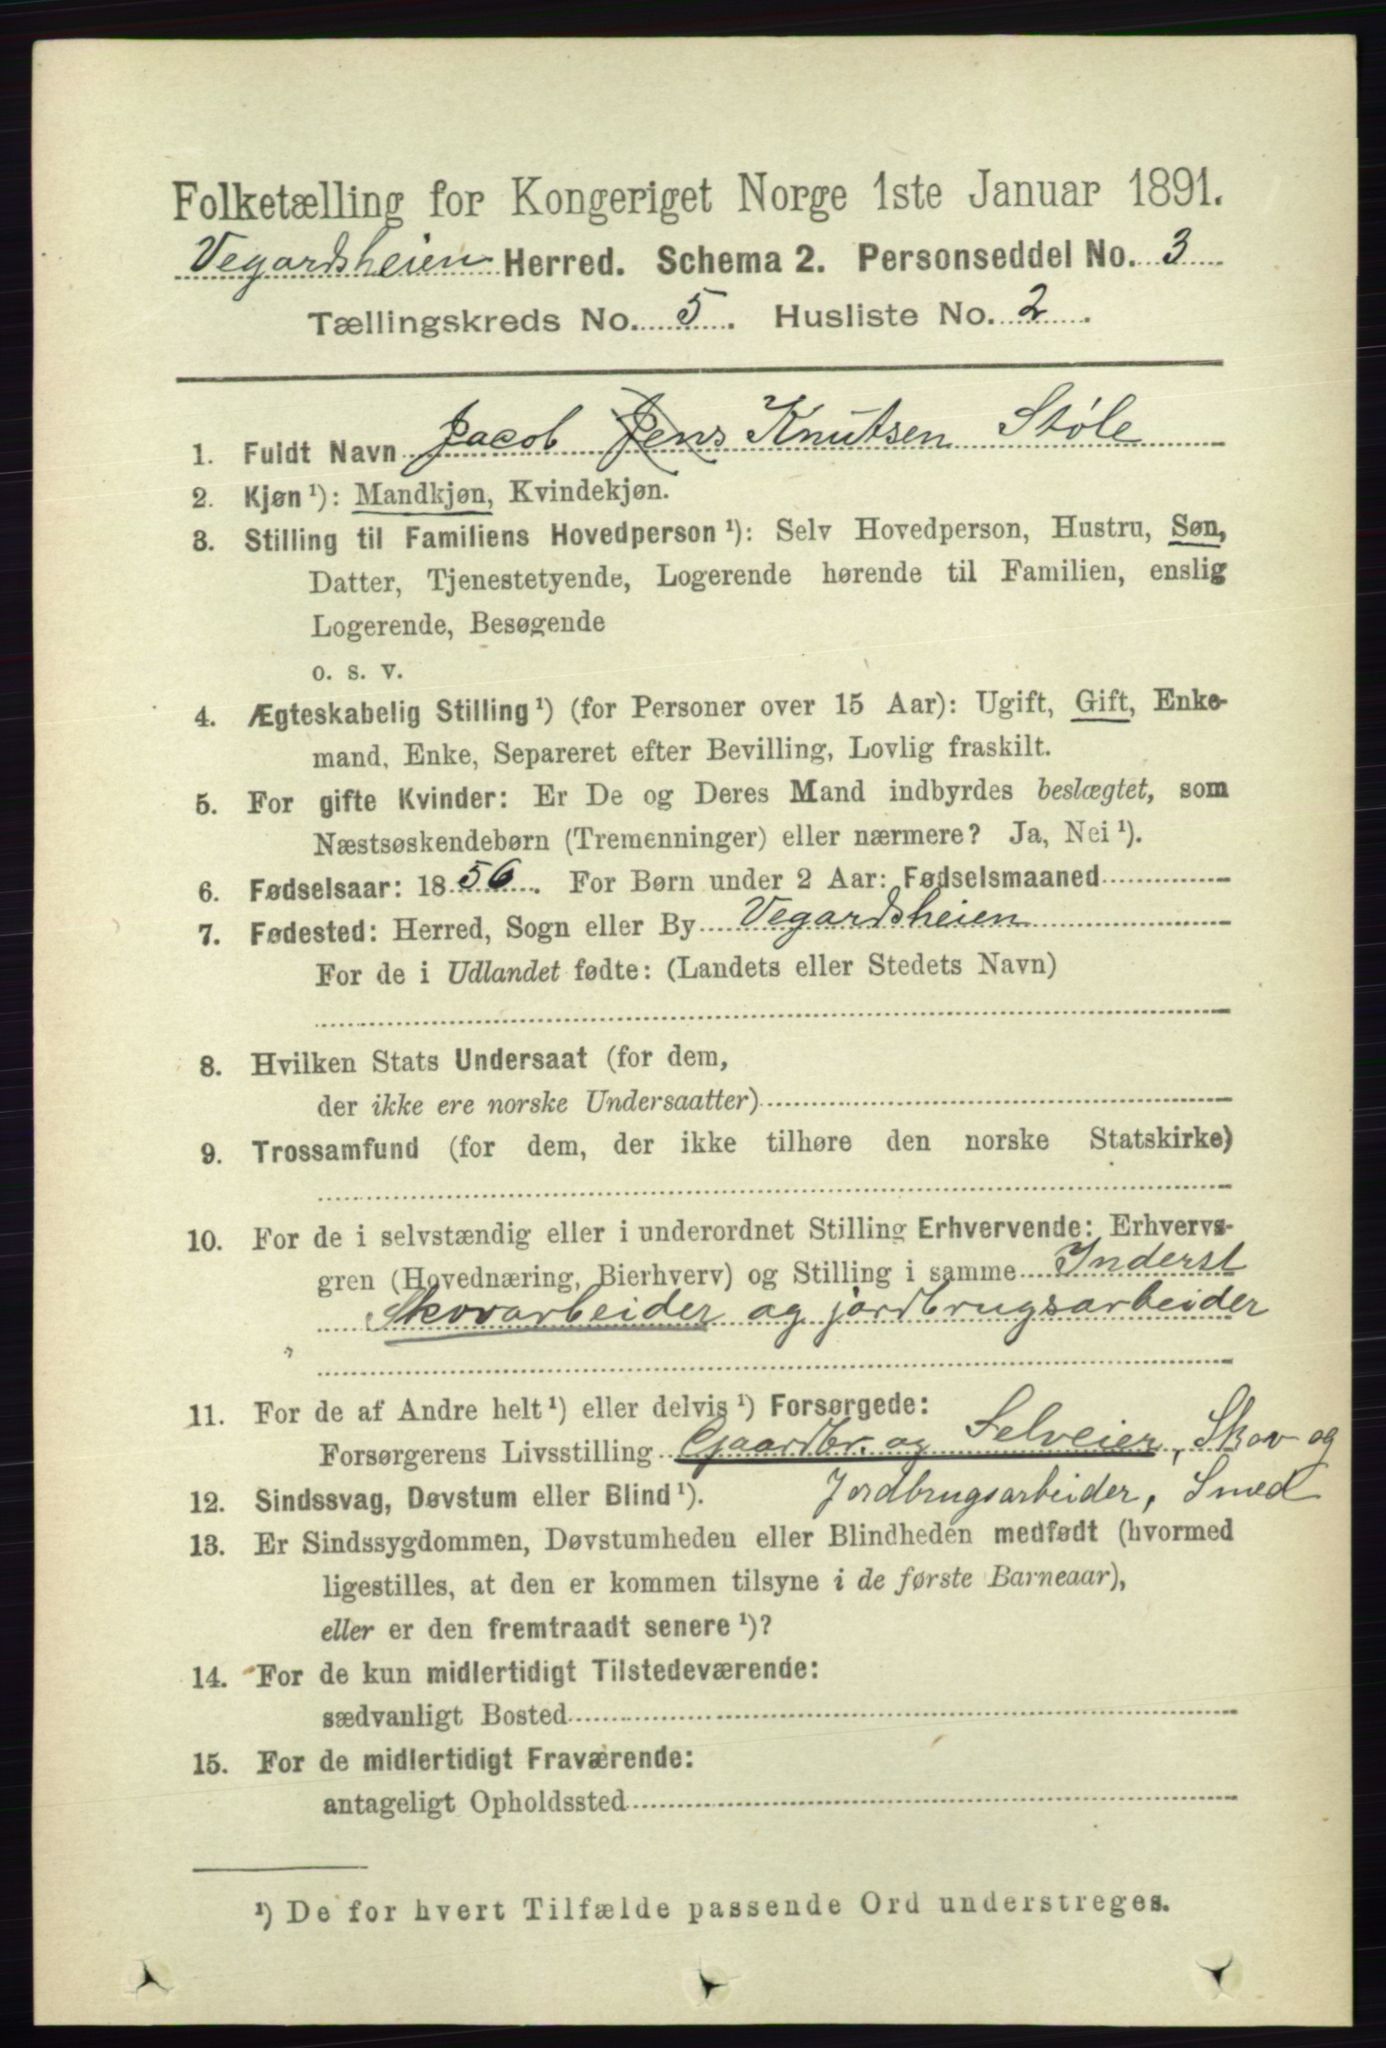 Folketælling for Kongeriget Norge 1ste Januar 1891.
Vegardsheien Herred. Schema 2. Personseddel No. 3
Tællingskreds No. 5. Husliste No. 2.
1. Fuldt Navn Jacob Jens Knutsen Støle
2. Kjøn¹): Mandkjøn, Kvindekjøn.
3. Stilling til Familiens Hovedperson¹): Selv Hovedperson, Hustru, Søn,
Datter, Tjenestetyende, Logerende hørende til Familien, enslig
Logerende, Besøgende
o. s. v.
4. Ægteskabelig Stilling¹) (for Personer over 15 Aar): Ugift, Gift, Enke-
mand, Enke, Separeret efter Bevilling, Lovlig fraskilt.
5. For gifte Kvinder: Er De og Deres Mand indbyrdes beslægtet, som
Næstsøskendebørn (Tremenninger) eller nærmere? Ja, Nei¹).
6. Fødselsaar: 1856. For Børn under 2 Aar: Fødselsmaaned
7. Fødested: Herred, Sogn eller By Vegardsheien
For de i Udlandet fødte: (Landets eller Stedets Navn)
8. Hvilken Stats Undersaat (for dem,
der ikke ere norske Undersaatter)
9. Trossamfund (for dem, der ikke tilhøre den norske Statskirke)
10. For de i selvstændig eller i underordnet Stilling Erhvervende: Erhvervs-
gren (Hovednæring, Bierhverv) og Stilling i samme Inderst
Skovarbeider og jordbrugsarbeider
11. For de af Andre helt¹) eller delvis¹) Forsørgede:
Forsørgerens Livsstilling Gaardbr. og Selveier, Skov og
12. Sindssvag, Døvstum eller Blind¹). Jordbrugsarbeider, Smed
13. Er Sindssygdommen, Døvstumheden eller Blindheden medfødt (hvormed
ligestilles, at den er kommen tilsyne i de første Barneaar),
eller er den fremtraadt senere¹)?
14. For de kun midlertidigt Tilstedeværende:
sædvanligt Bosted
15. For de midlertidigt Fraværende:
antageligt Opholdssted
¹) De for hvert Tilfælde passende Ord understreges.